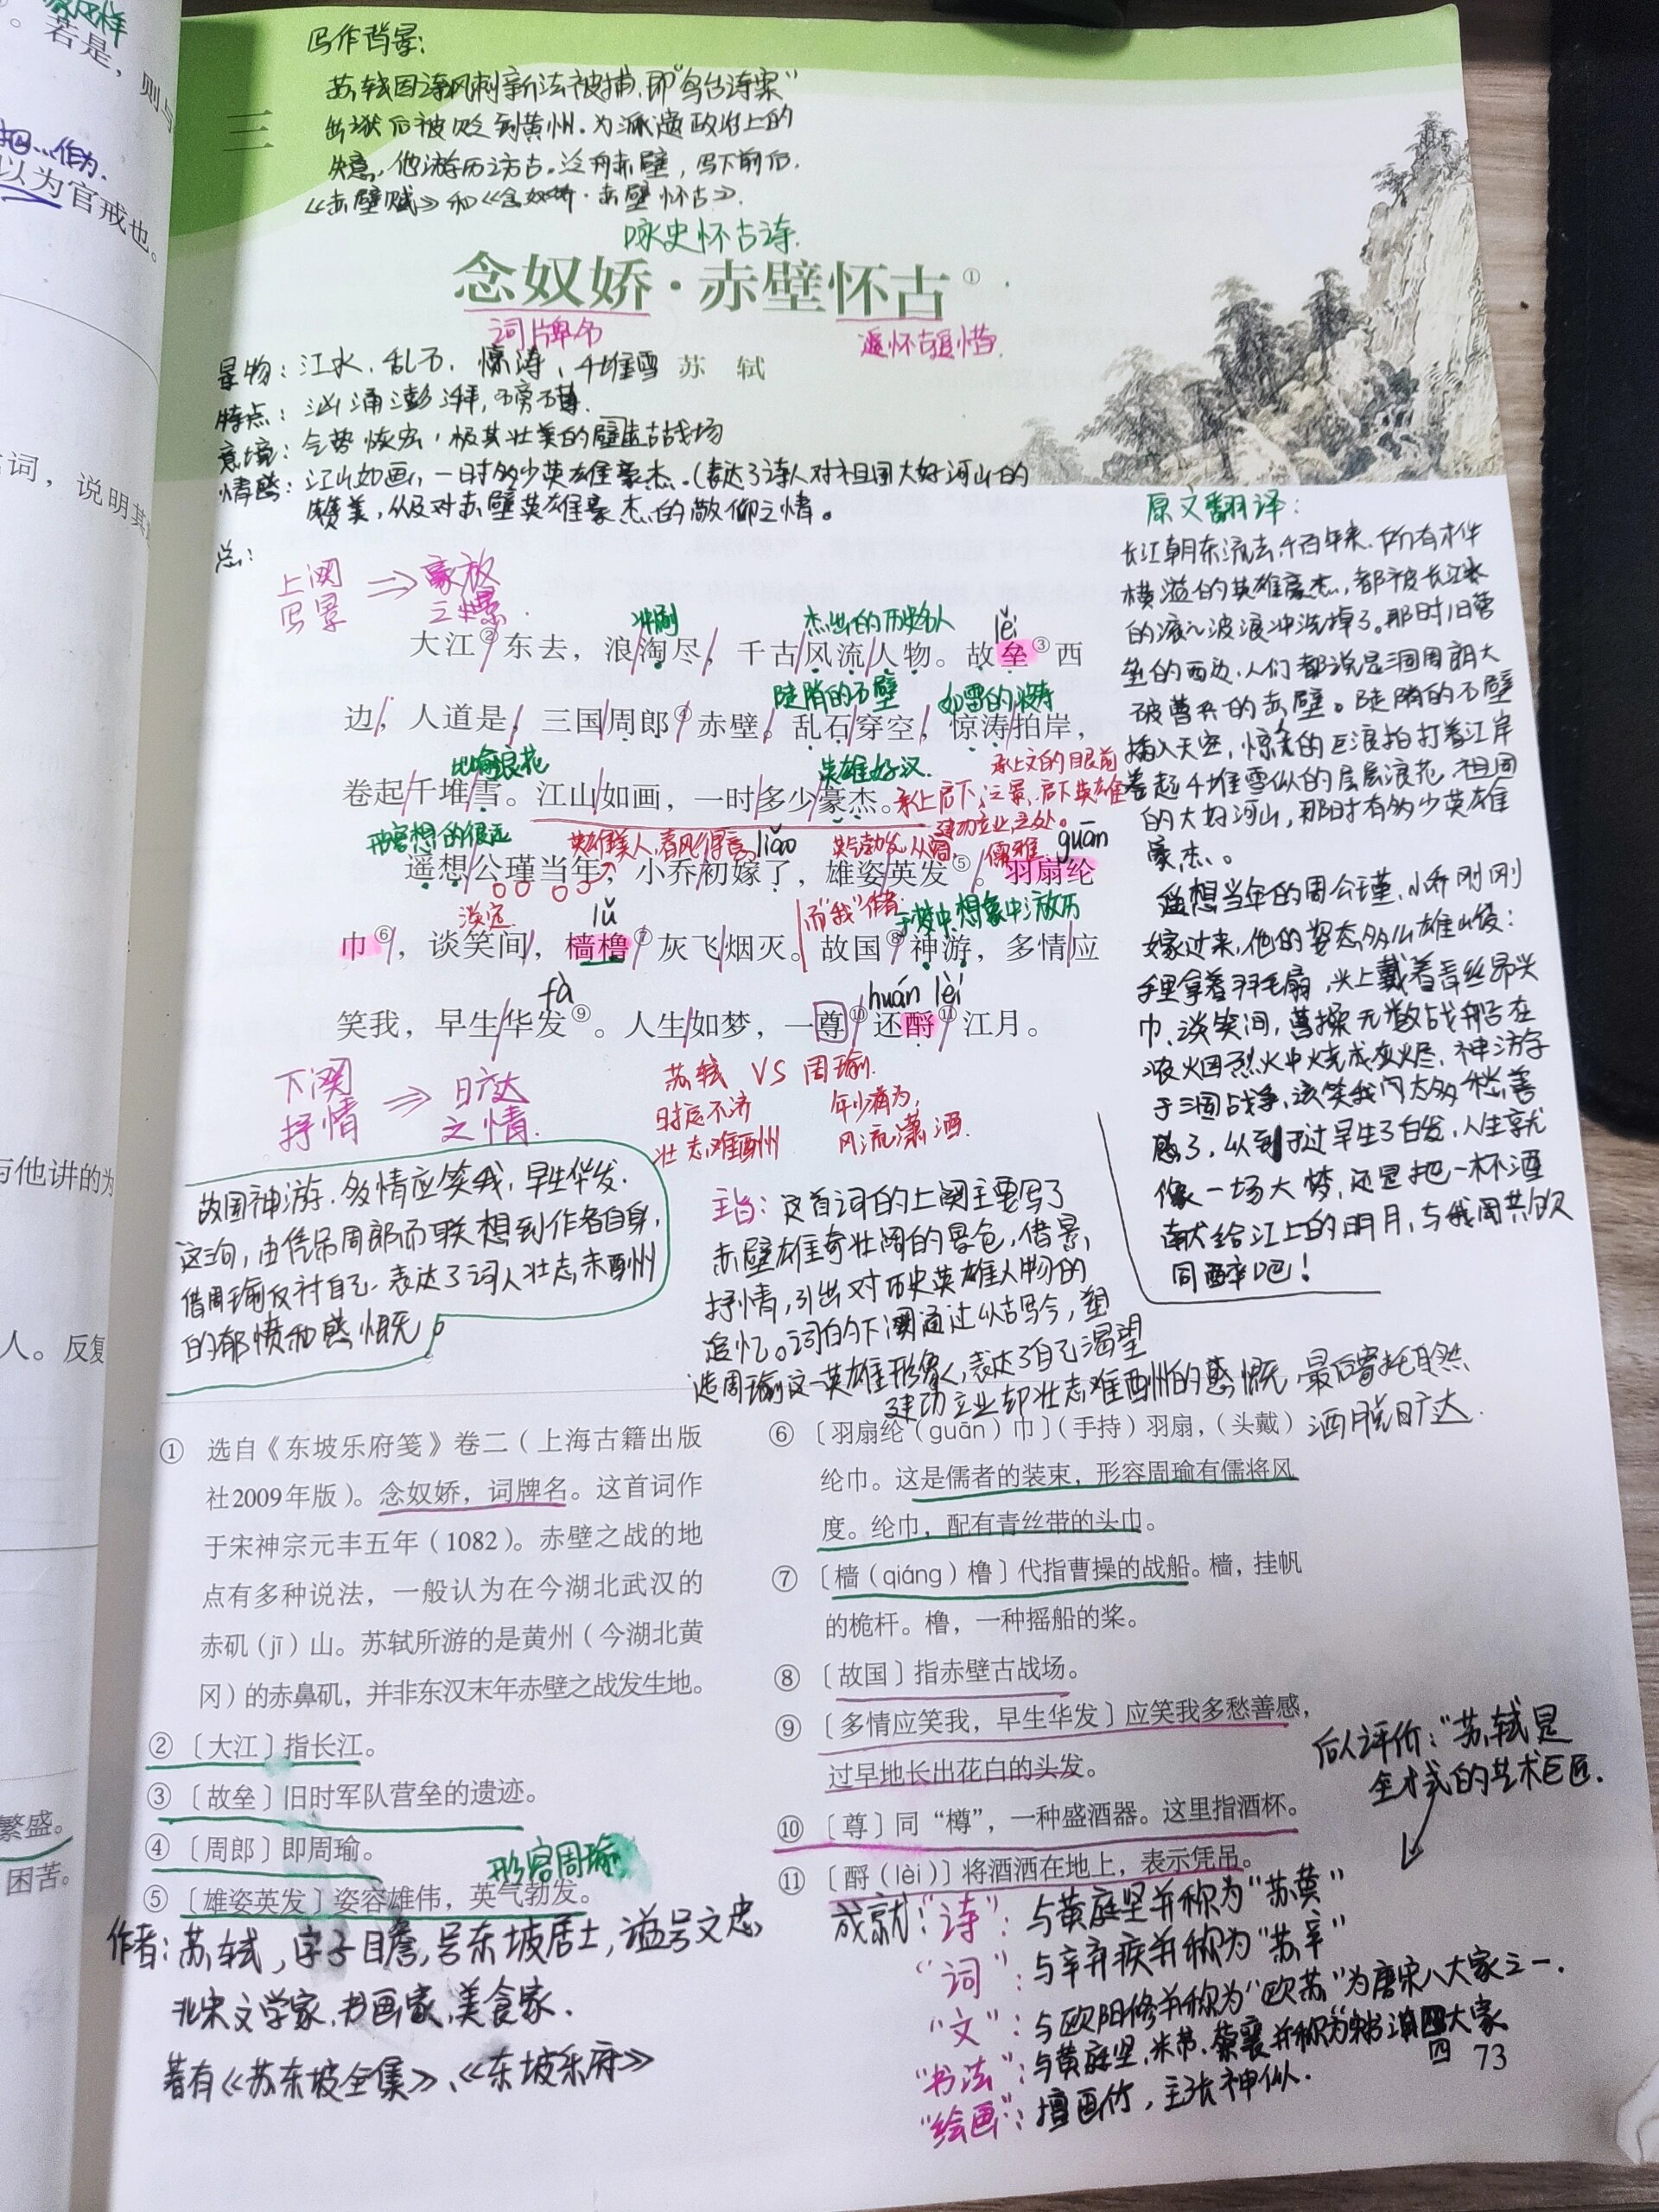 若是，
则与
把…作为
以为官戒也。
词，说明其
与他讲的为
人。反复
繁盛。
困苦。
写作背景：
苏轼因诗讽刺新法被捕，即“乌台诗案”
出狱后被贬到黄州。为派遣政治上的
失意，他游历访古。泛舟赤壁，写下前后
《赤壁赋》和《念奴娇·赤壁怀古》.
三
咏史怀古诗.
念奴娇·赤壁怀古①
词牌名
追怀古追惜.
苏 轼
景物：江水、乱石、惊涛、千堆雪
特点：汹涌澎湃，磅礴.
意境：气势恢宏，极其壮美的壁垒古战场
情感：江山如画，一时多少英雄豪杰.（表达了诗人对祖国大好河山的
赞美，以及对赤壁英雄豪杰的敬仰之情。
总：
上阕 ⇒ 豪放
写景 之景.
冲刷 杰出的历史名人 lěi
大江②东去，浪淘尽，千古风流人物。故垒③西
陡峭的石壁 如雪的波涛
边，人道是，三国周郎④赤壁。乱石穿空，惊涛拍岸，
比喻浪花 英雄好汉. 承上文的目前
卷起千堆雪。江山如画，一时多少豪杰。
承上启下，之景，启下英雄
建功立业之处。
形容想的很远 英雄美人，春风得意 liǎo 英气勃发，从容 儒雅 guān
遥想公瑾当年，小乔初嫁了，雄姿英发⑤。羽扇纶
淡定 lǔ 而“我”作者 于梦中、想象中游历
巾⑥，谈笑间，樯橹⑦灰飞烟灭。故国⑧神游，多情应
fà huán lèi
笑我，早生华发⑨。人生如梦，一尊⑩还酹⑪江月。
下阕 ⇒ 旷达
抒情 之情.
苏轼 VS 周瑜.
时运不济 年少有为，
壮志难酬 风流潇洒.
故国神游，多情应笑我，早生华发.
这三句，由凭吊周郎而联想到作者自身，
借周瑜反衬自己，表达了词人壮志未酬
的郁愤和感慨。
主旨：这首词的上阕主要写了
赤壁雄奇壮阔的景色，借景
抒情，引出对历史英雄人物的
追忆。词的下阕通过以古写今，塑
造周瑜这一英雄形象，表达了自己渴望
建功立业却壮志难酬的感慨，最后寄托自然
洒脱旷达.
原文翻译：
长江朝东流去，千百年来，所有才华
横溢的英雄豪杰，都被长江水
的滚滚波浪冲洗掉了。那时旧营
垒的西边，人们都说是三国周郎大
破曹兵的赤壁。陡峭的石壁
插入天空，惊人的巨浪拍打着江岸
卷起千堆雪似的层层浪花，祖国
的大好河山，那时有多少英雄
豪杰。
遥想当年的周公瑾，小乔刚刚
嫁过来，他的姿态多么雄峻：
手里拿着羽毛扇，头上戴着青丝帛头
巾，谈笑间，曹操无数战船在
浓烟烈火中烧成灰烬，神游于
于三国战争，该笑我们太多愁善
感了，以至于过早生了白发，人生就
像一场大梦，还是把一杯酒
献给江上的明月，与我同共饮
同醉吧！
① 选自《东坡乐府笺》卷二（上海古籍出版
社2009年版）。念奴娇，词牌名。这首词作
于宋神宗元丰五年（1082）。赤壁之战的地
点有多种说法，一般认为在今湖北武汉的
赤矶（jī）山。苏轼所游的是黄州（今湖北黄
冈）的赤鼻矶，并非东汉末年赤壁之战发生地。
② 〔大江〕指长江。
③ 〔故垒〕旧时军队营垒的遗迹。
④ 〔周郎〕即周瑜。
形容周瑜
⑤ 〔雄姿英发〕姿容雄伟，英气勃发。
⑥ 〔羽扇纶（guān）巾〕（手持）羽扇，（头戴）
纶巾。这是儒者的装束，形容周瑜有儒将风
度。纶巾，配有青丝带的头巾。
⑦ 〔樯（qiáng）橹〕代指曹操的战船。樯，挂帆
的桅杆。橹，一种摇船的桨。
⑧ 〔故国〕指赤壁古战场。
⑨ 〔多情应笑我，早生华发〕应笑我多愁善感，
过早地长出花白的头发。
⑩ 〔尊〕同“樽”，一种盛酒器。这里指酒杯。
⑪ 〔酹（lèi）〕将酒洒在地上，表示凭吊。
后人评价：“苏轼是
全才式的艺术巨匠.
作者：苏轼，字子瞻，号东坡居士，谥号文忠
北宋文学家、书画家、美食家.
著有《苏东坡全集》、《东坡乐府》
成就：“诗”：与黄庭坚并称为“苏黄”
“词”：与辛弃疾并称为“苏辛”
“文”：与欧阳修并称为“欧苏”为唐宋八大家之一.
“书法”：与黄庭坚、米芾、蔡襄并称为“宋书法四大家
四
“绘画”：擅画竹，主张神似.
73